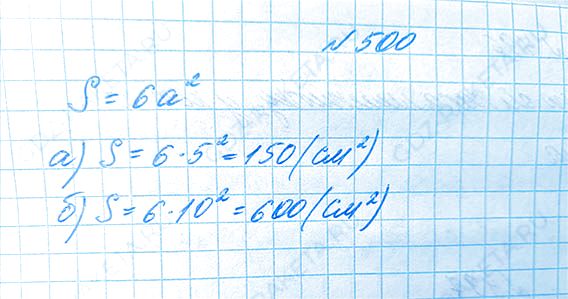 № 500
S = 6a²
а) S = 6 · 5² = 150 (см²)
б) S = 6 · 10² = 600 (см²)